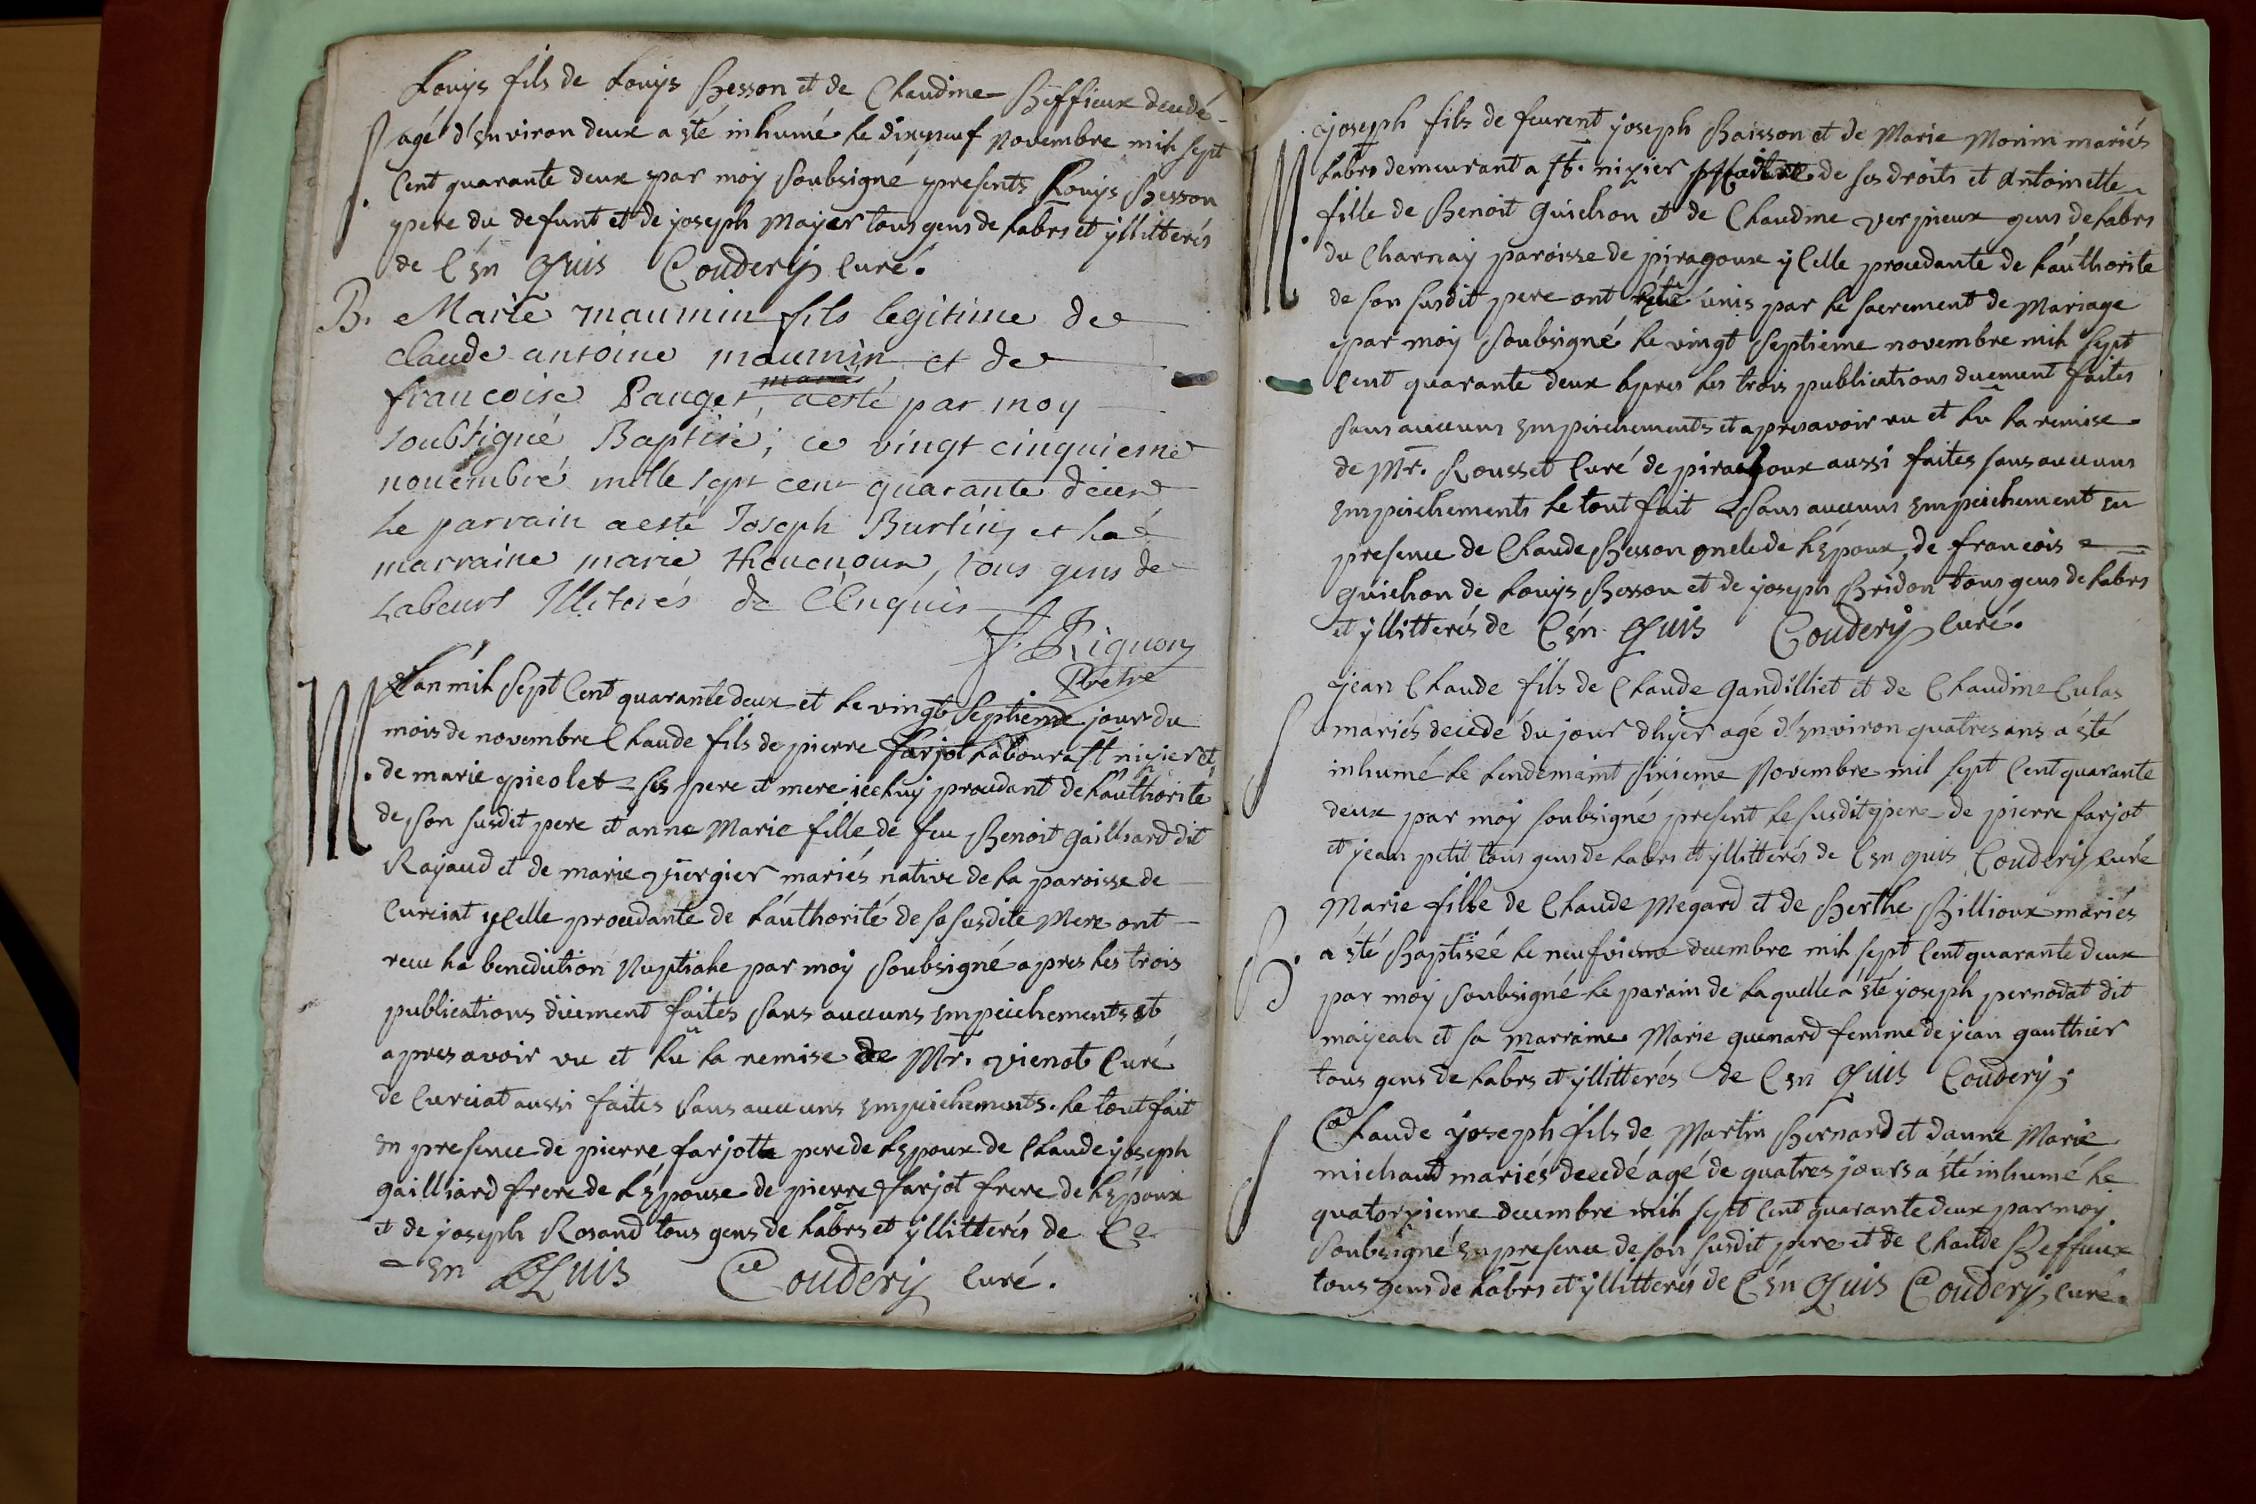 Louys fils de Louys Besson et de Claudine Beffieux decedé
S. agé d'Environ deux a été inhumé le dixneuf Novembre mil sept
Cent quarante deux par moy soubsigné presents Louys Besson
pere du defunt et de joseph Mayer tous gens de labrs et yllitterés
de C'En Quis Couderj Curé.
B. Marie maumin fils legitime de
claude antoine maumin et de
francoise Pauget, a esté par moy
soubsigné, Baptisé, ce vingt cinquieme
novembre mille sept cent quarante deux
Le parrain a esté Joseph Burtin, et La
marraine marie Thevenoux, tous gens de
Labeurs Illiterés de C'Enquis
J. Rignon
Prêtre
M. L'an mil sept Cent quarante deux et le vingt septieme jour du
mois de novembre Claude fils de pierre farjot Labour a st nizier et
de marie picolet ses pere et mere icelluy procedant de L'authorité
de son susdit pere et anna Marie fille de feu Benoit Gailliard dit
Rayaud et de marie Viergier mariés native de La paroisse de
Curciat ycelle procedante de L'authorité de sa susdite Mere ont
receu La benediction Nuptiale par moy soubsigné apres les trois
publications düement faites sans aucuns Empeichements et
apres avoir vu et Lu La remise de Mr. Vienot Curé
de Curciat aussi faites sans aucuns Empeichements. Le tout fait
En presence de pierre farjot pere de L'Epoux de Claude joseph
gailliard frere de L'Epouse de pierre farjot frere de L'Epoux
et de joseph Rosand tous gens de Labrs et yllitterés de Ce
En Quis Couderj Curé.
joseph fils de feu rent joseph Baisson et de Marie Morin mariés
M. Labrs demeurant a st. nizier de ses droits et Antoinette
fille de Benoit Guichon et de Claudine Verpieux gens de Labrs
du Charnay paroisse de piragoux yCelle procedante de L'authorite
de son susdit pere ont été unis par le sacrement de Mariage
par moy soubsigné le vingt septieme novembre mil sept
Cent quarante deux apres les trois publications duement faites
sans aucuns Empeichements et apres avoir vu et Lu La remise
de Mr. Rousset Curé de piragoux aussi faites sans aucuns
Empeichements Le tout fait sans aucuns Empeichement En
presence de Claude Besson oncle de L'Epoux, de francois
guichon de Louys Besson et de joseph Bridon tous gens de Labrs
et yllitterés de C'En Quis Couderj Curé.
jean Claude fils de Claude Gandilliet et de Claudine Culas
S mariés decedé du jour d'hyer agé d'Environ quatres ans a été
inhumé le Lendemaint sixieme Novembre mil sept Cent quarante
deux par moy soubsigné present Le susdit pere de pierre farjot
et jean petit tous gens de Labrs et yllitterés de C'En quis Couderj Curé
Marie fille de Claude Megard et de Berthe Billioux mariés
B. a été Baptiseé le neufvieme decembre mil sept Cent quarante deux
par moy soubsigné le parain de Laquelle a été joseph pernodat dit
majean et sa marraine Marie quenard femme de jean gauthier
tous gens de Labrs et yllitterés de C'En Quis Couderj;
S Claude joseph fils de Martin Bernard et d'anne Marie
michaud mariés decedé agé de quatres jours a été inhumé le
quatorzieme decembre mil sept Cent quarante deux par moy
soubsigné En presence de son susdit pere et de Claude Beffieux
tous gens de Labrs et yllitterés de C'En Quis Couderj Curé.